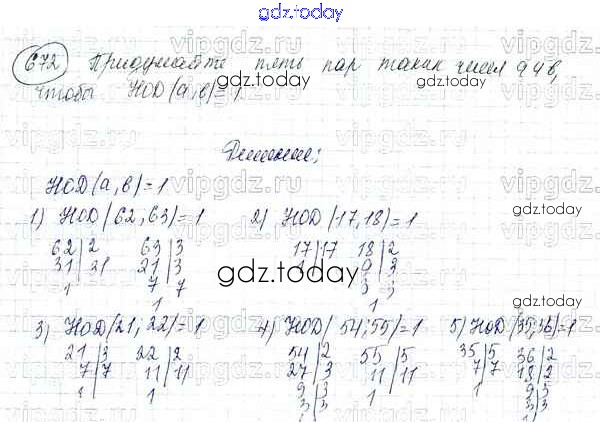 gdz.today
672 Придумайте пять пар таких чисел а и в,
чтобы НОД (а,в)=1.
gdz.today
Решение:
НОД (а,в)=1
1) НОД (62,63)=1 2) НОД (17,18)=1
62|2 63|3 17|17 18|2
31|31 21|3 1 9|3
1 7|7 3|3
1 1
gdz.today
3) НОД (21,22)=1 4) НОД (54,55)=1 5) НОД (35,36)=1
21|3 22|2 54|2 55|5 35|5 36|2
7|7 11|11 27|3 11|11 7|7 18|2
1 1 9|3 1 1 9|3
3|3 3|3
gdz.today